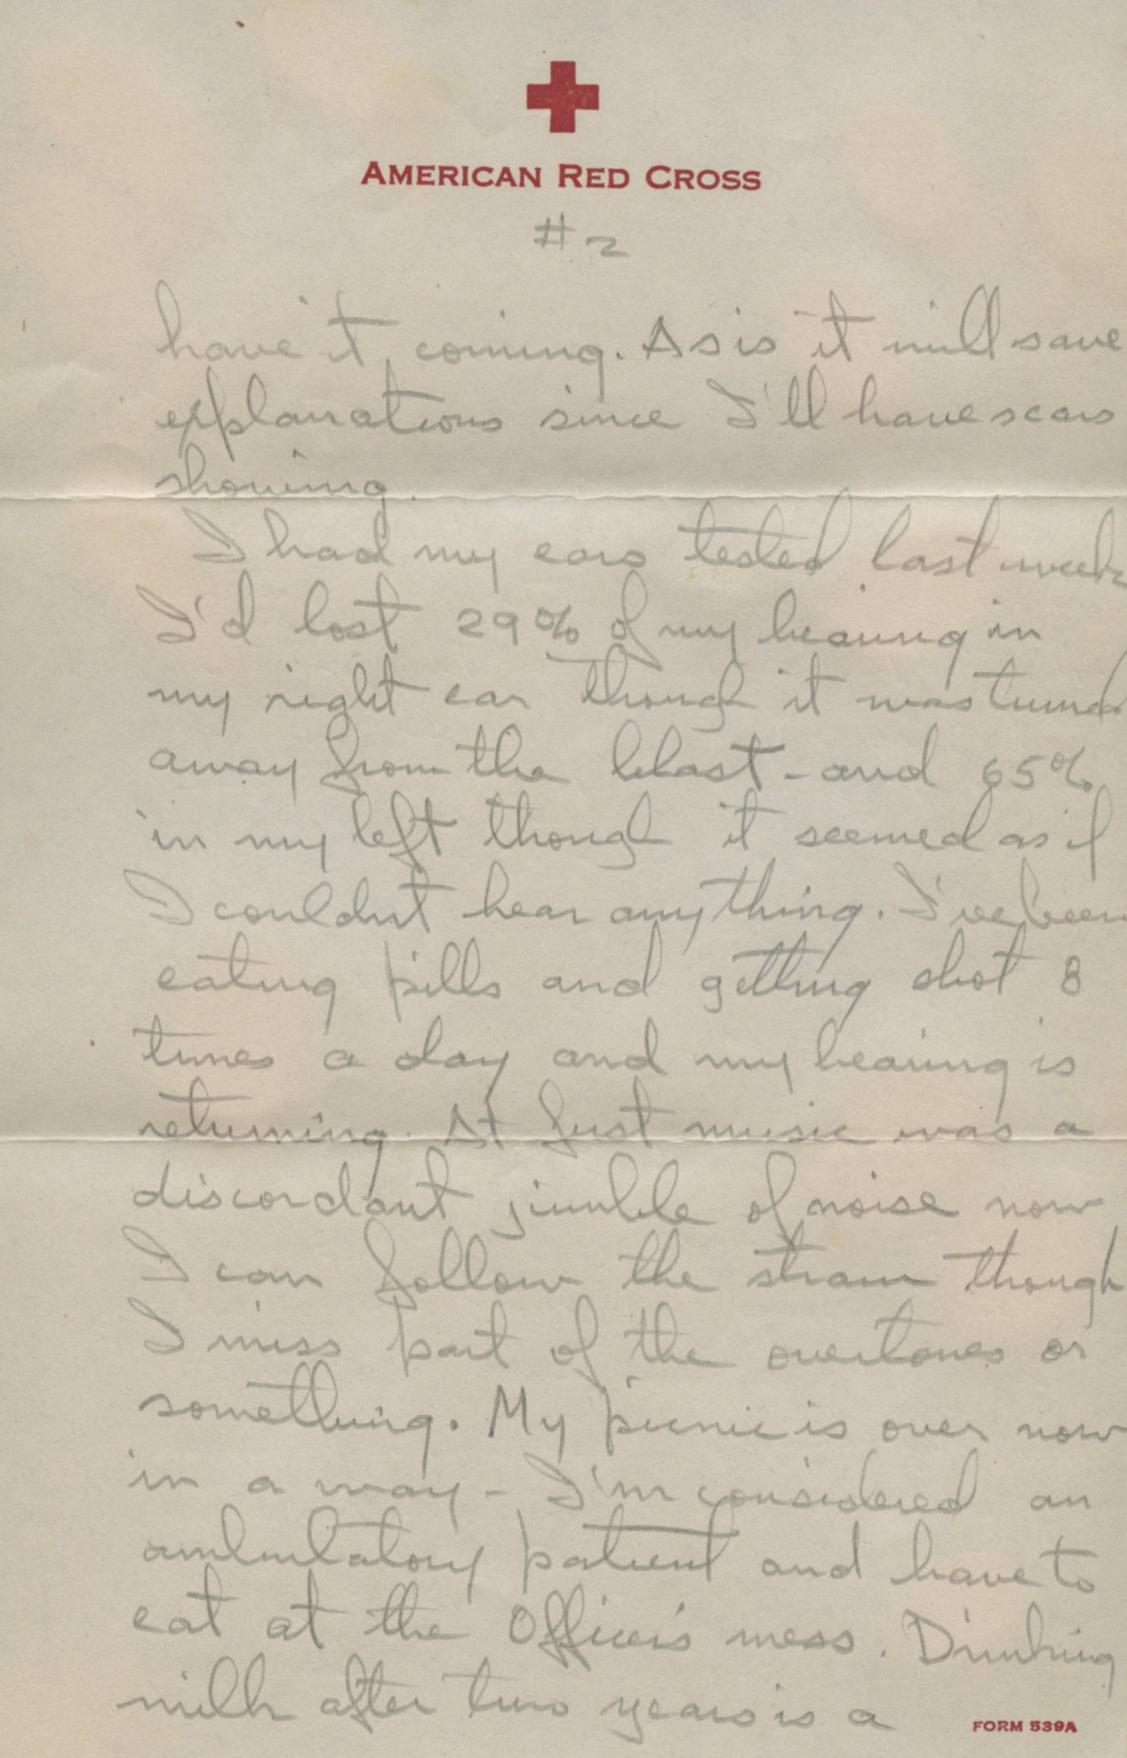 AMERICAN RED CROSS
#2
have it coming. As is it will save
explanations since I'll have scars
showing.
I had my ears tested last week
I'd lost 29% of my hearing in
my right ear though it was turned
away from the blast - and 65%
in my left though it seemed as if
I couldn't hear anything. I've been
eating pills and getting shot 8
times a day and my hearing is
returning. At first music was a
discordant jumble of noise now
I can follow the strain though
I miss part of the overtones or
something. My picnic is over now
in a way - I'm considered an
ambulatory patient and have to
eat at the Officer's mess. Drinking
milk after two years is a
FORM 539A